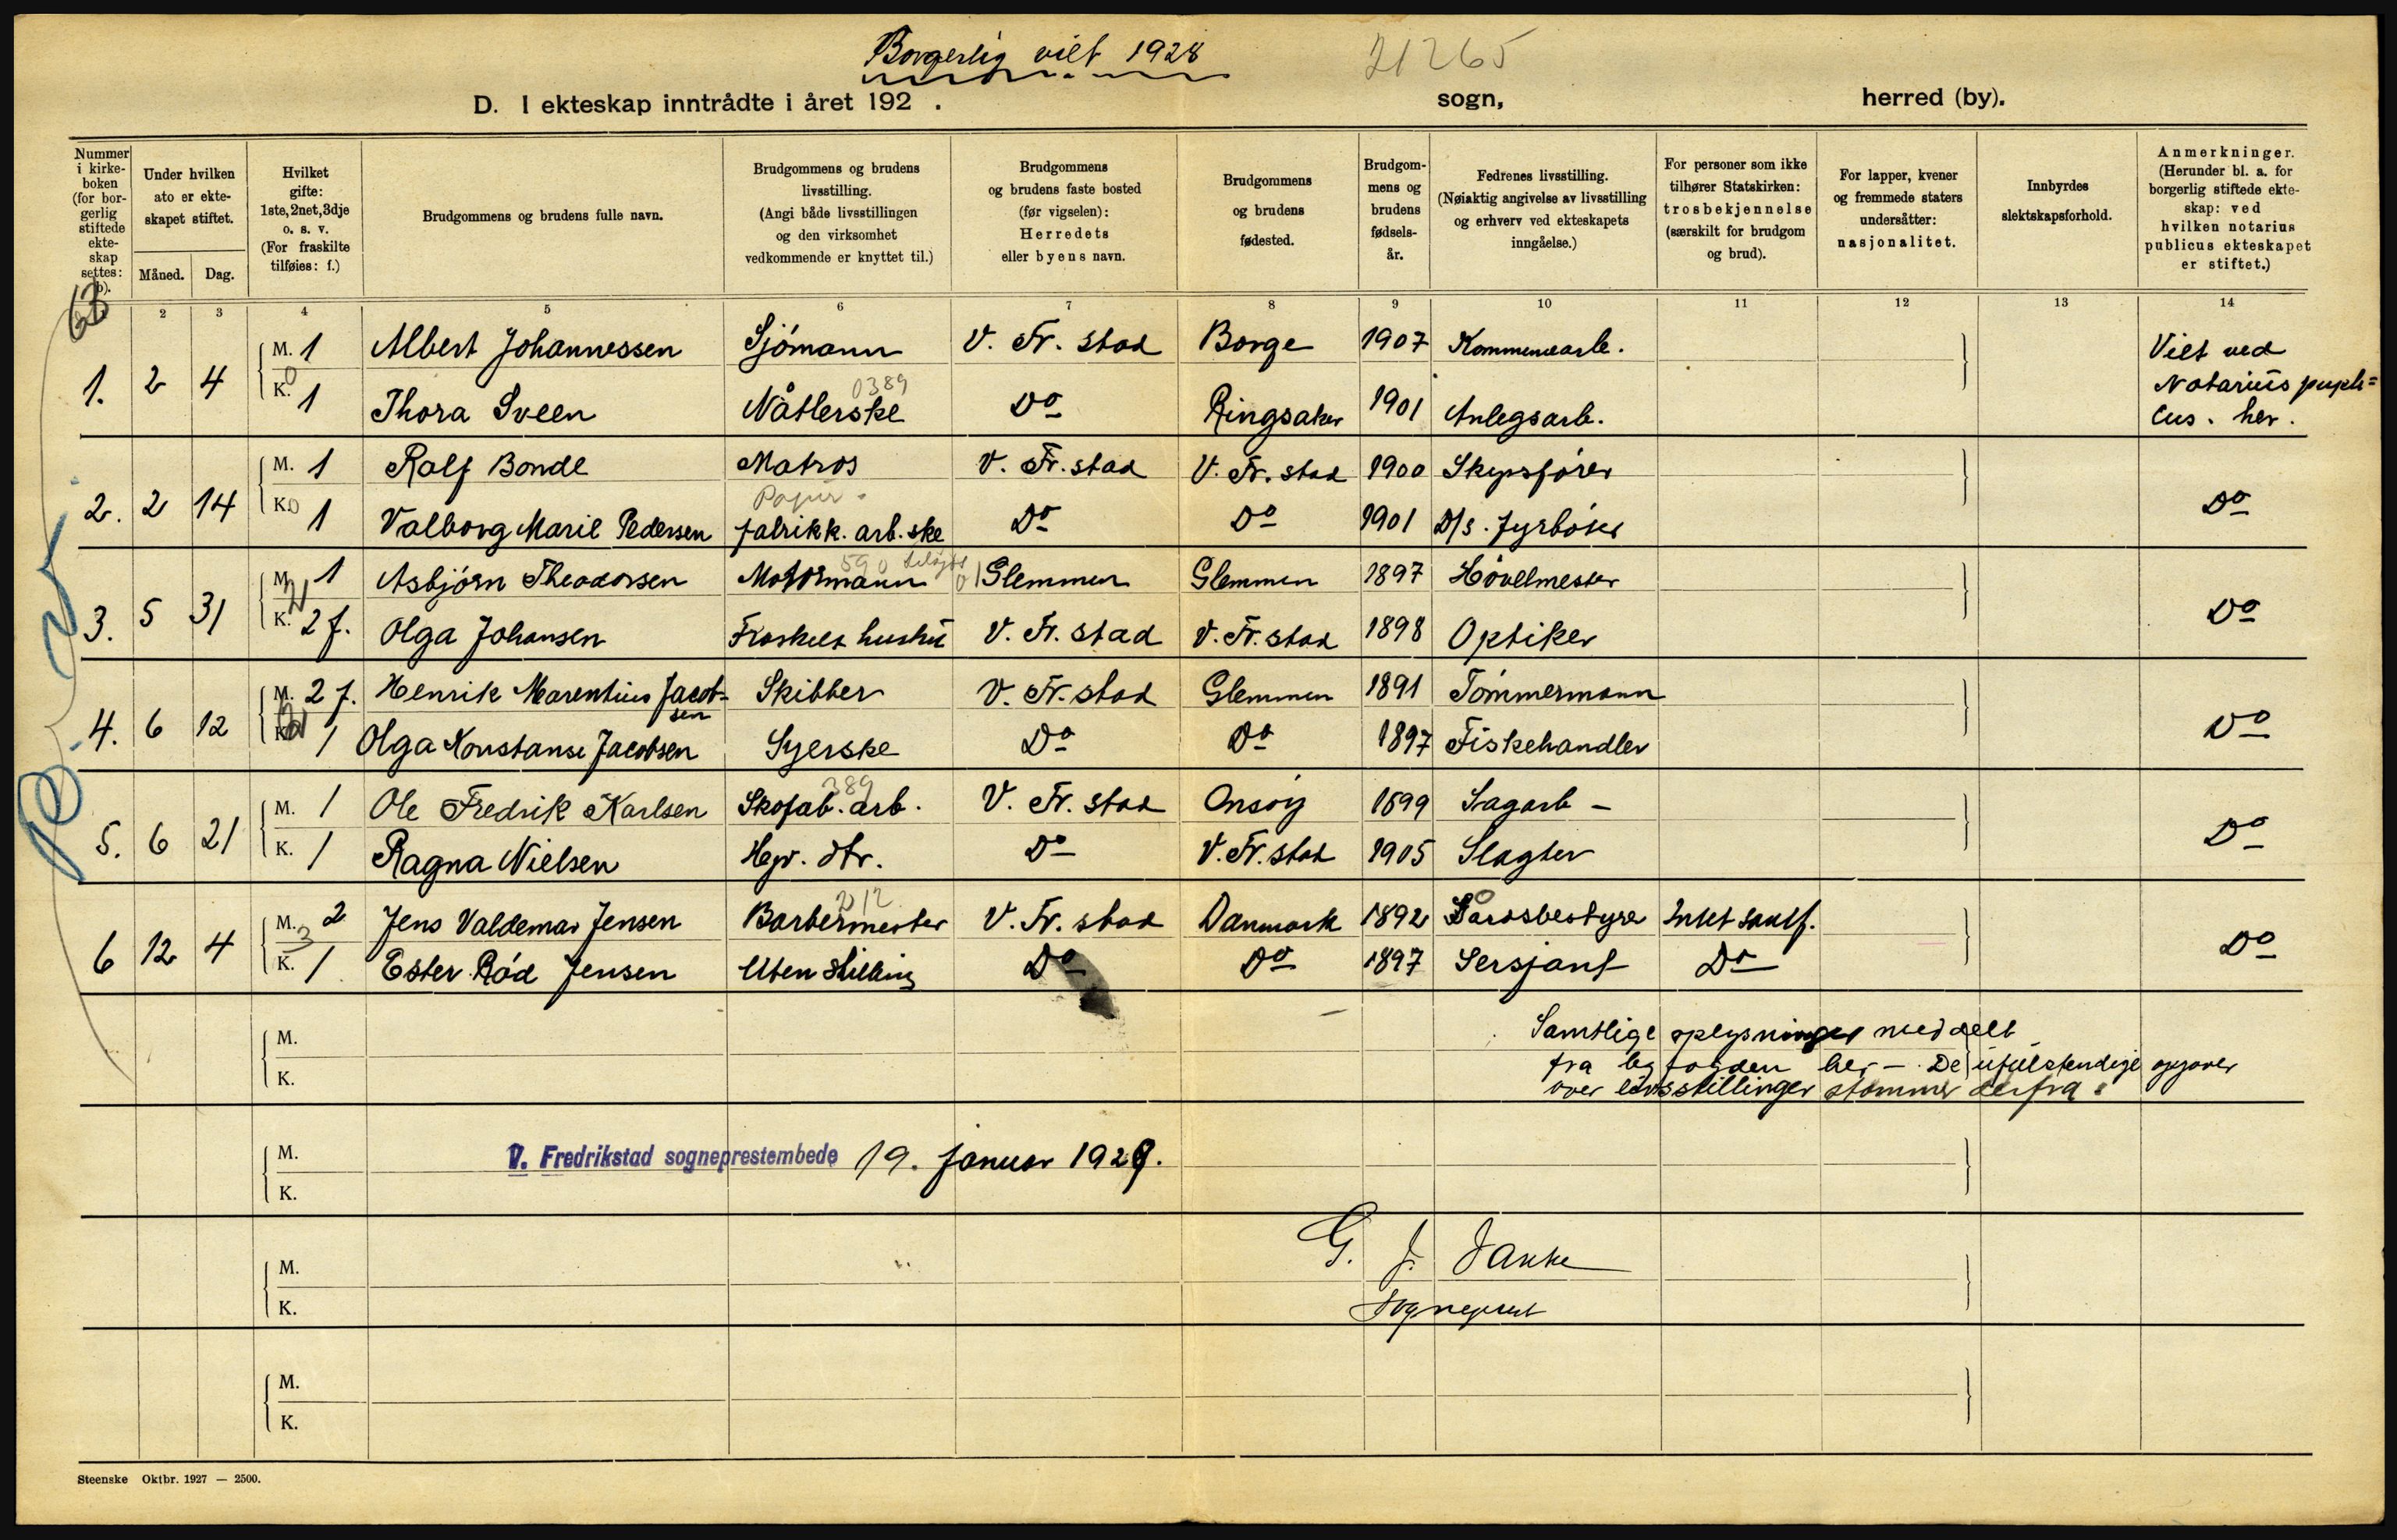 Borgerlig viet 1928
21265
D. I ekteskap inntrådte i året 192 . sogn, herred (by).
Nummer i kirkeboken (for borgerlig stiftede ekteskap settes: b). Under hvilken dato er ekteskapet stiftet. Måned. Dag. Hvilket gifte: 1ste, 2net, 3dje o. s. v. (For fraskilte tilføies: f.) Brudgommens og brudens fulle navn. Brudgommens og brudens livsstilling. (Angi både livsstillingen og den virksomhet vedkommende er knyttet til.) Brudgommens og brudens faste bosted (før vigselen): Herredets eller byens navn. Brudgommens og brudens fødested. Brudgommens og brudens fødselsår. Fedrenes livsstilling. (Nøiaktig angivelse av livsstilling og erhverv ved ekteskapets inngåelse.) For personer som ikke tilhører Statskirken: trosbekjennelse (særskilt for brudgom og brud). For lapper, kvener og fremmede staters undersåtter: nasjonalitet. Innbyrdes slektskapsforhold. Anmerkninger. (Herunder bl. a. for borgerlig stiftede ekteskap: ved hvilken notarius publicus ekteskapet er stiftet.)
2 3 4 5 6 7 8 9 10 11 12 13 14
1. 2 4 M. 1 Albert Johannessen Sjömann V. Fr. stad Borge 1907 Kommunearb. Viet ved Notarius publi=cus. her.
K. 1 Thora Sveen Nåtlerske 0389 Do Ringsaker 1901 Anlegsarb.
2. 2 14 M. 1 Rolf Bonde Matros V. Fr. stad V. Fr. stad 1900 Skipsfører Do
K. 1 Valborg Marie Pedersen Papir fabrikk. arb.ske Do Do 1901 D/s. fyrböter
3. 5 31 M. 1 Asbjörn Theodorsen Motormann 590 Glemmen Glemmen 1897 Hövelmester Do
K. 2 f. Olga Johansen Fraskilt hustru V. Fr. stad V. Fr. stad 1898 Optiker
4. 6 12 M. 2 f. Henrik Marentius Jacobsen Skibber V. Fr. stad Glemmen 1891 Tömmermann Do
K. 1 Olga Konstanse Jacobsen Syerske Do Do 1897 Fiskehandler
5. 6 21 M. 1 Ole Fredrik Karlsen Skofab. arb. 389 V. Fr. stad Onsöy 1899 Sagarb – Do
K. 1 Ragna Nielsen Hgv. dtr. Do V. Fr. stad 1905 Slagter
6 12 4 M. 2 Jens Valdemar Jensen Barbermester V. Fr. stad Danmark 1892 Intet samf. Do
K. 1 Ester Röd Jensen Uten stilling Do Do 1897 Sersjant Do
M.
K.
Samtlige oplysninger meddelt
fra byfogden her – De ufulstendige opgaver
over livsstillinger stammer derfra.
M.
K.
V. Fredrikstad sogneprestembede 19. januar 1929.
M.
K.
G. J. Janke
Sogneprest
M.
K.
Steenske Oktbr. 1927 — 2500.